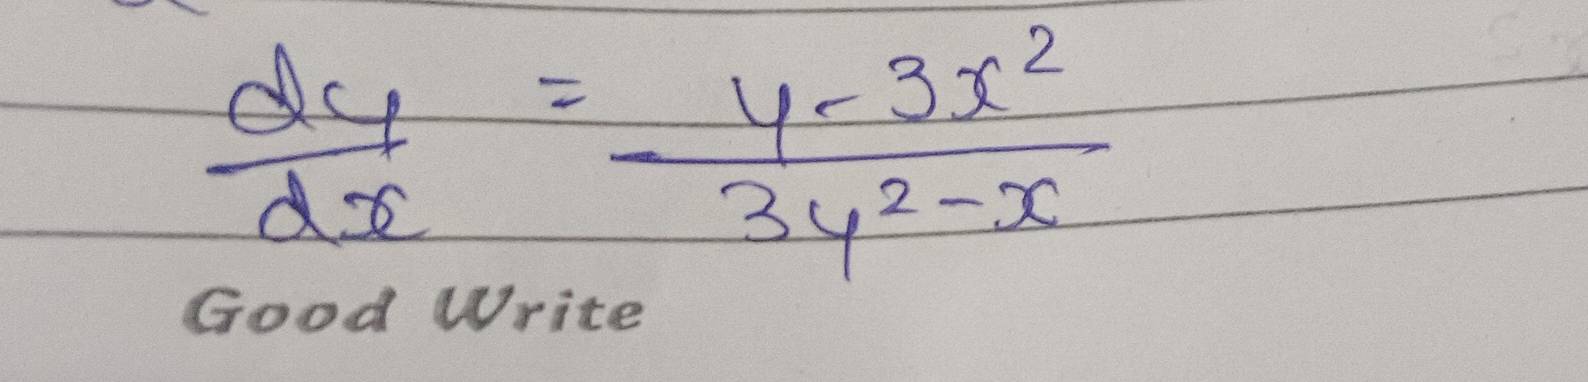 dy/dx = (y - 3x²)/(3y² - x)
Good Write